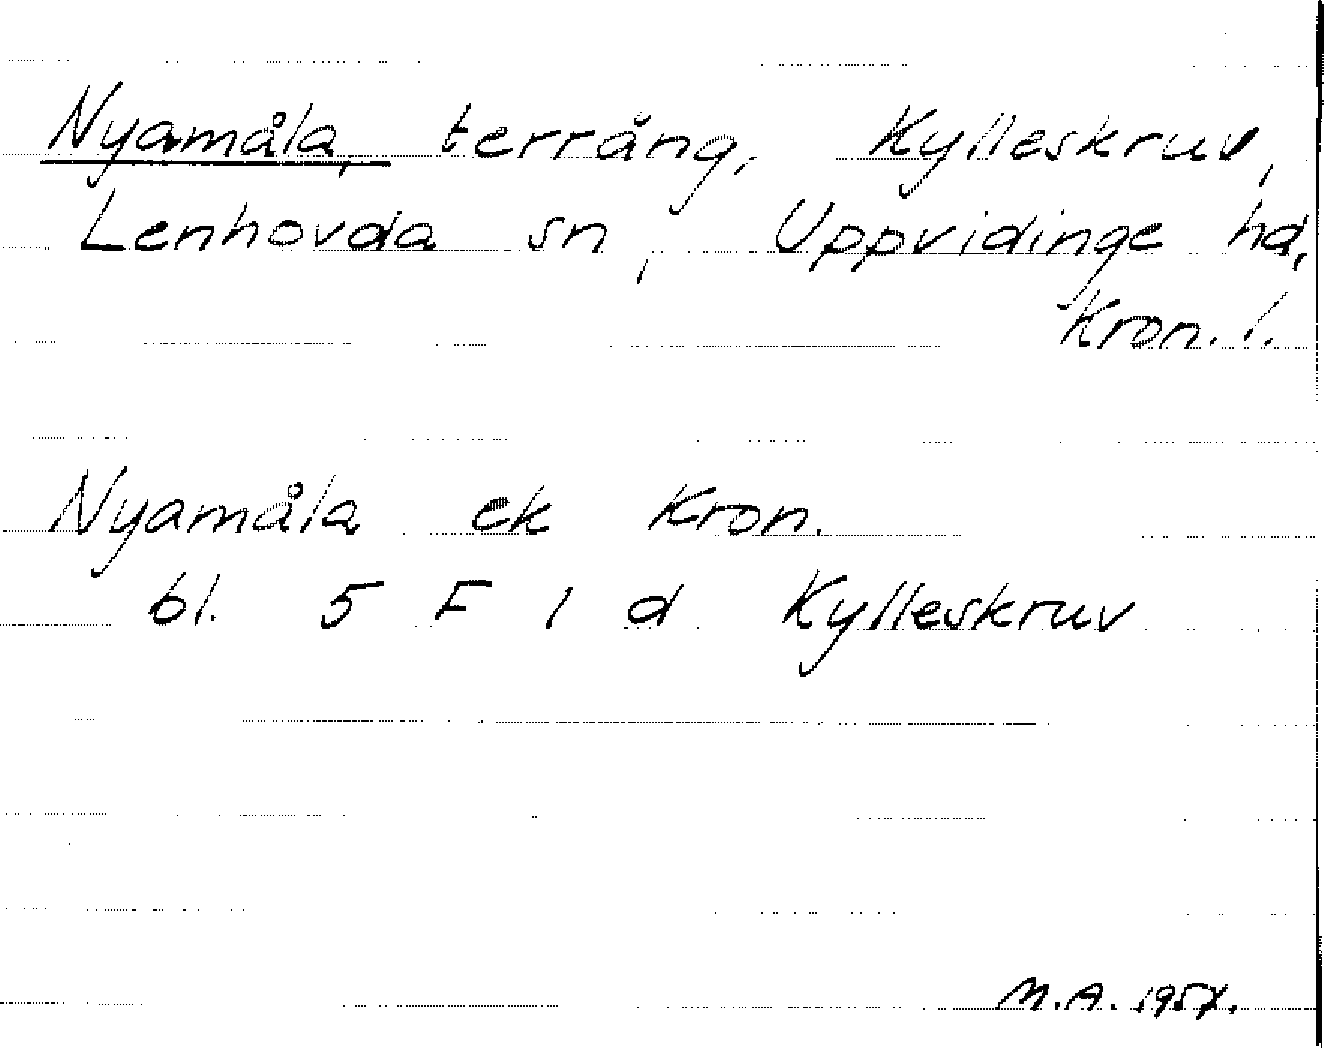 Nyamåla, terräng, Kylleskruv,
Lenhovda sn, Uppvidinge hd,
Kron. l.
Nyamåla ek Kron.
bl. 5 F 1 d Kylleskruv
M.A. 1957.